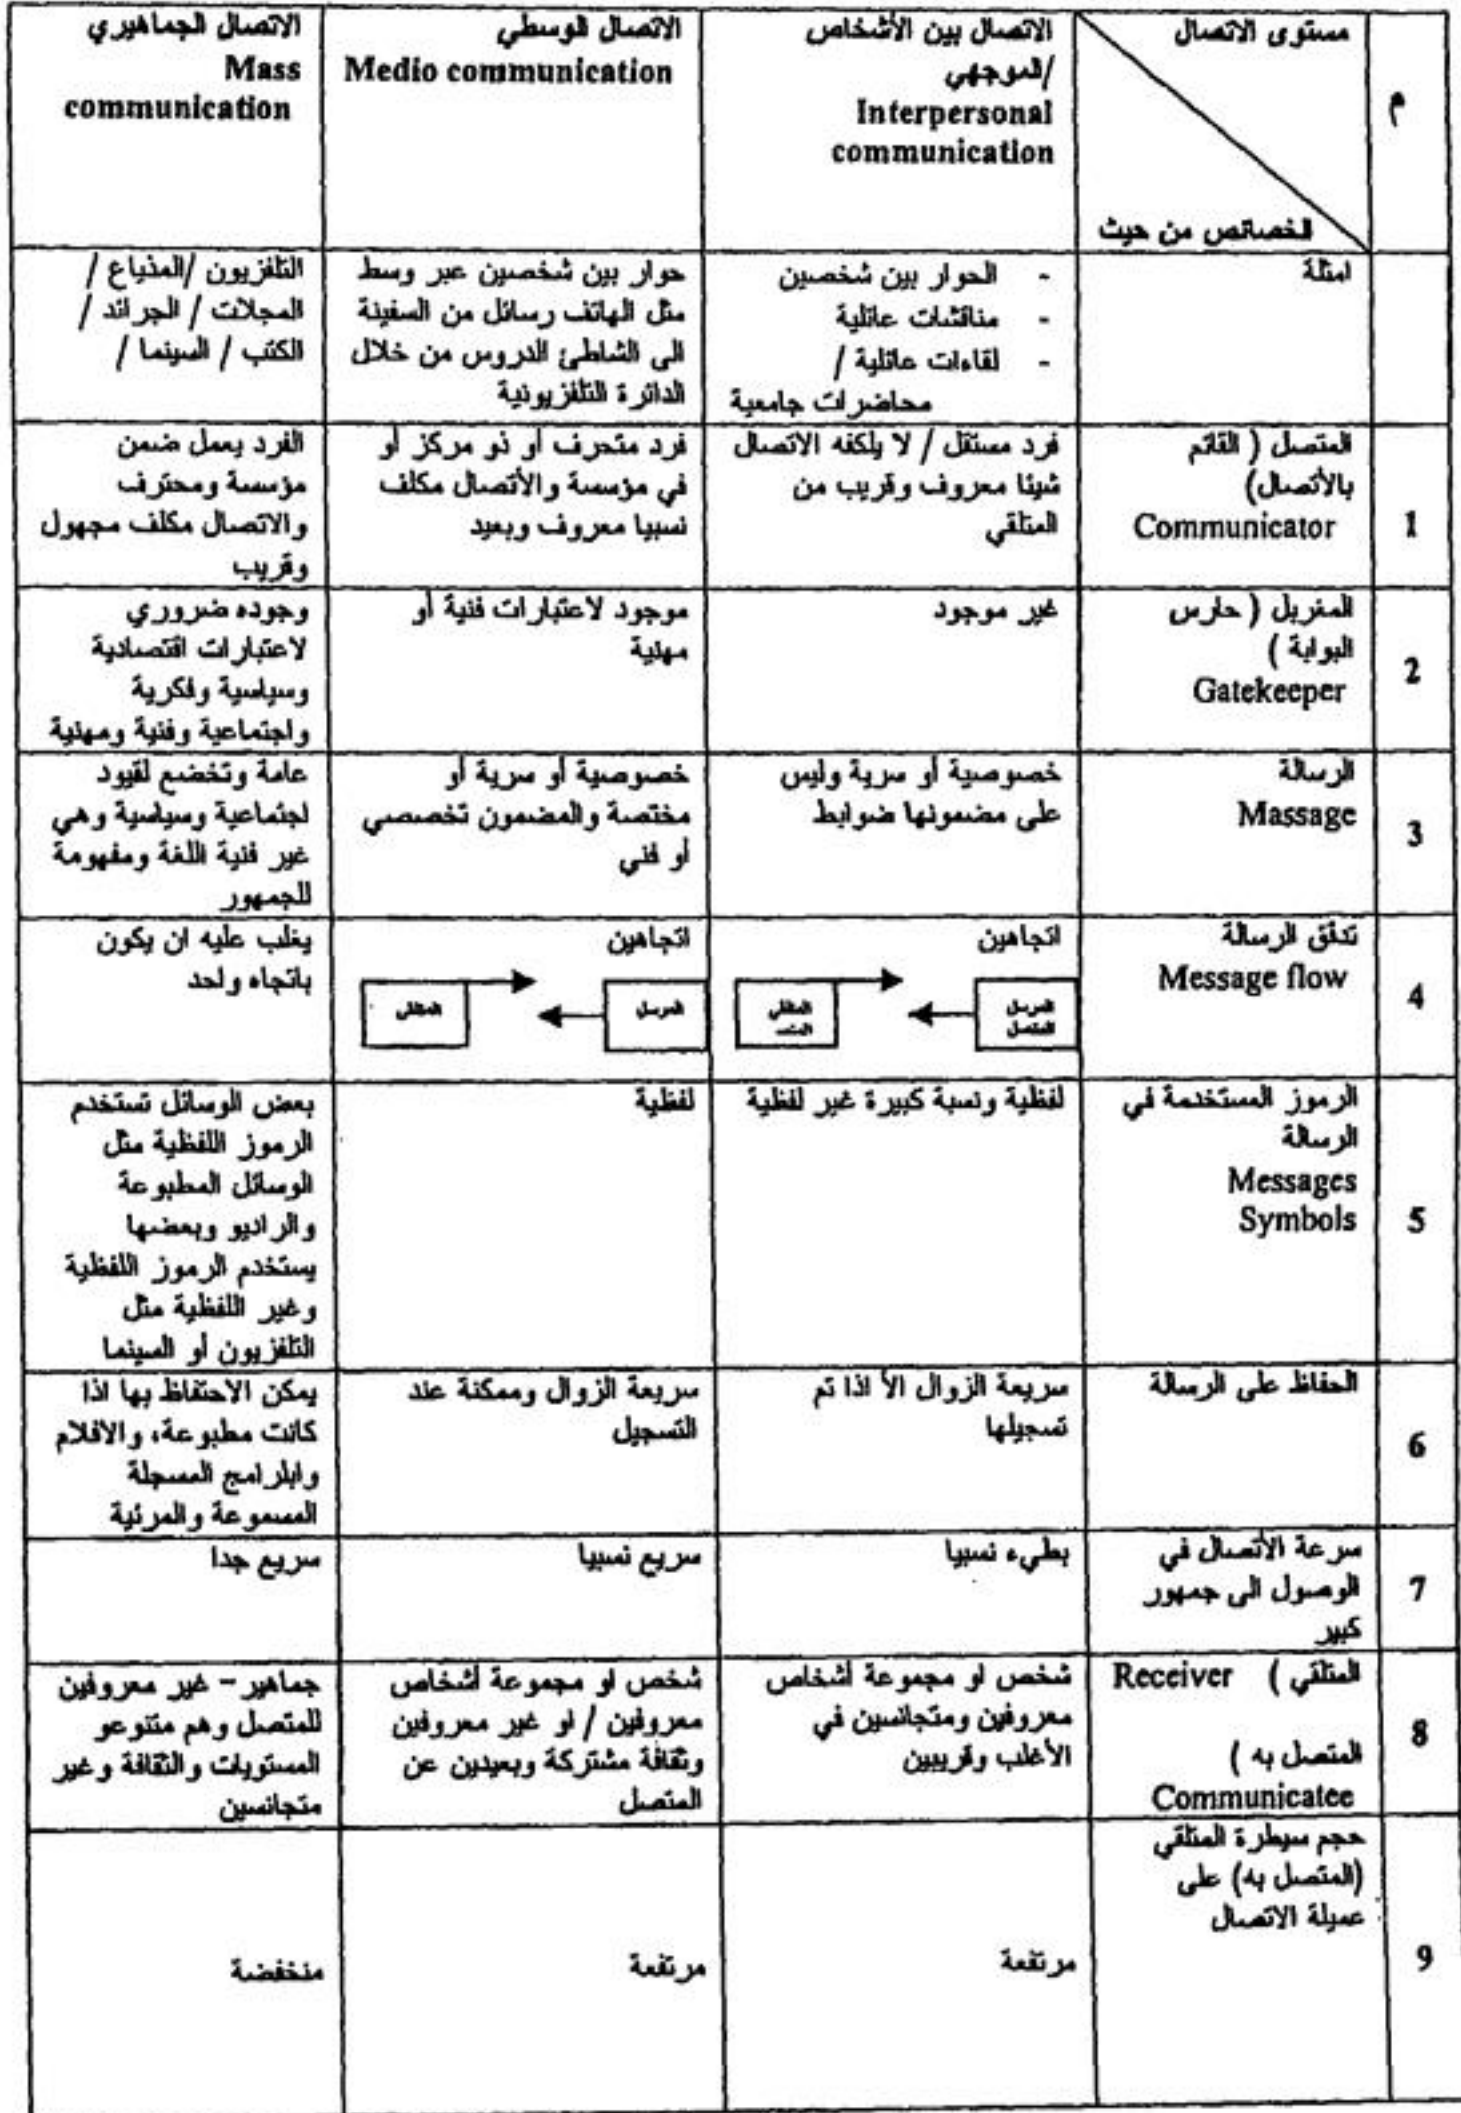 م
مستوى الاتصال
الخصائص من حيث
الاتصال بين الأشخاص
/الموجهي
Interpersonal
communication
الاتصال الوسطي
Medio communication
الاتصال الجماهيري
Mass
communication
امثلة
- الحوار بين شخصين
- مناقشات عائلية
- لقاءات عائلية /
محاضرات جامعية
حوار بين شخصين عبر وسط
مثل الهاتف رسائل من السفينة
الى الشاطئ الدروس من خلال
الدائرة التلفزيونية
التلفزيون /المذياع /
المجلات / الجرائد /
الكتب / السينما /
1
المتصل ( القائم
بالأتصال)
Communicator
فرد مستقل / لا يلكفه الاتصال
شيئا معروف وقريب من
المتلقي
فرد متحرف أو ذو مركز أو
في مؤسسة والأتصال مكلف
نسبيا معروف وبعيد
الفرد يعمل ضمن
مؤسسة ومحترف
والاتصال مكلف مجهول
وقريب
2
المغربل ( حارس
البوابة )
Gatekeeper
غير موجود
موجود لاعتبارات فنية أو
مهنية
وجوده ضروري
لاعتبارات اقتصادية
وسياسية وفكرية
واجتماعية وفنية ومهنية
3
الرسالة
Massage
خصوصية أو سرية وليس
على مضمونها ضوابط
خصوصية أو سرية أو
مختصة والمضمون تخصصي
أو فني
عامة وتخضع لقيود
اجتماعية وسياسية وهي
غير فنية اللغة ومفهومة
للجمهور
4
تدفق الرسالة
Message flow
اتجاهين
المرسل
المتصل
المتلقي
اتجاهين
المرسل
المتلقي
يغلب عليه ان يكون
باتجاه واحد
5
الرموز المستخدمة في
الرسالة
Messages
Symbols
لفظية ونسبة كبيرة غير لفظية
لفظية
بعض الوسائل تستخدم
الرموز اللفظية مثل
الوسائل المطبوعة
والراديو وبعضها
يستخدم الرموز اللفظية
وغير اللفظية مثل
التلفزيون أو السينما
6
الحفاظ على الرسالة
سريعة الزوال الأ اذا تم
تسجيلها
سريعة الزوال وممكنة عند
التسجيل
يمكن الاحتفاظ بها اذا
كانت مطبوعة، والافلام
وابلرامج المسجلة
المسموعة والمرئية
7
سرعة الأتصال في
الوصول الى جمهور
كبير
بطيء نسبيا
سريع نسبيا
سريع جدا
8
المتلقي ) Receiver
المتصل به )
Communicatee
شخص او مجموعة أشخاص
معروفين ومتجانسين في
الأغلب وقريبين
شخص او مجموعة أشخاص
معروفين / او غير معروفين
وثقافة مشتركة وبعيدين عن
المتصل
جماهير – غير معروفين
للمتصل وهم متنوعو
المستويات والثقافة وغير
متجانسين
9
حجم سيطرة المتلقي
(المتصل به) على
عميلة الاتصال
مرتفعة
مرتفعة
منخفضة